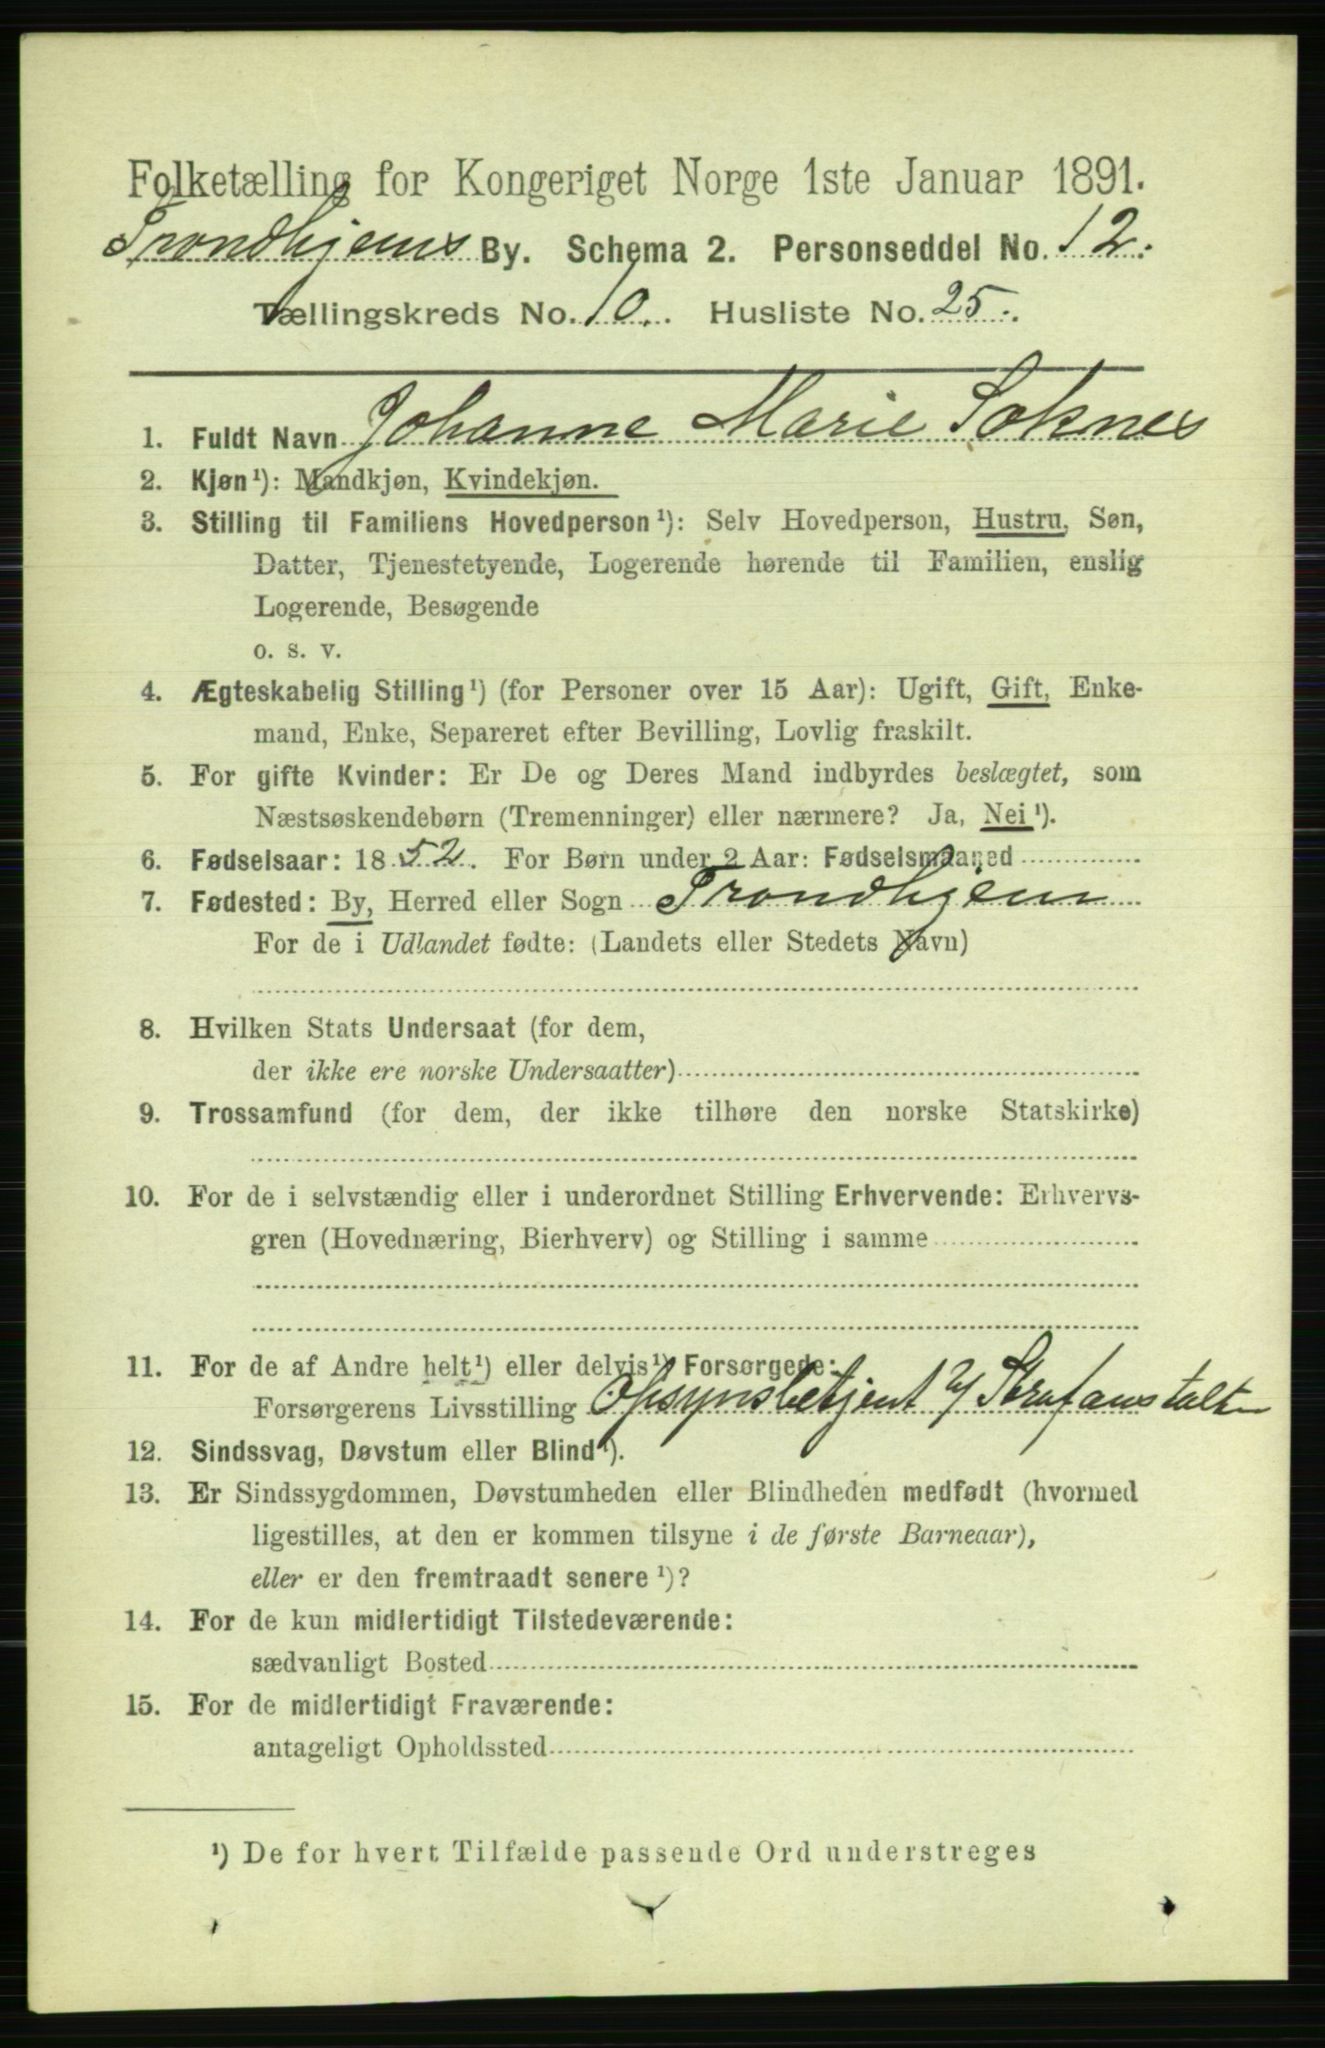 Folketælling for Kongeriget Norge 1ste Januar 1891.
Trondhjems By. Schema 2. Personseddel No. 12.
Tællingskreds No. 10. Husliste No. 25.
1. Fuldt Navn Johanne Marie Soknes
2. Kjøn¹): Mandkjøn, Kvindekjøn.
3. Stilling til Familiens Hovedperson¹): Selv Hovedperson, Hustru, Søn,
Datter, Tjenestetyende, Logerende hørende til Familien, enslig
Logerende, Besøgende
o. s. v.
4. Ægteskabelig Stilling¹) (for Personer over 15 Aar): Ugift, Gift, Enke-
mand, Enke, Separeret efter Bevilling, Lovlig fraskilt.
5. For gifte Kvinder: Er De og Deres Mand indbyrdes beslægtet, som
Næstsøskendebørn (Tremenninger) eller nærmere? Ja, Nei¹).
6. Fødselsaar: 1852. For Børn under 2 Aar: Fødselsmaaned
7. Fødested: By, Herred eller Sogn Trondhjem
For de i Udlandet fødte: (Landets eller Stedets Navn)
8. Hvilken Stats Undersaat (for dem,
der ikke ere norske Undersaatter)
9. Trossamfund (for dem, der ikke tilhøre den norske Statskirke)
10. For de i selvstændig eller i underordnet Stilling Erhvervende: Erhvervs-
gren (Hovednæring, Bierhverv) og Stilling i samme
11. For de af Andre helt¹) eller delvis¹) Forsørgede:
Forsørgerens Livsstilling Opsynsbetjent v/ Strafanstalten
12. Sindssvag, Døvstum eller Blind¹).
13. Er Sindssygdommen, Døvstumheden eller Blindheden medfødt (hvormed
ligestilles, at den er kommen tilsyne i de første Barneaar),
eller er den fremtraadt senere¹)?
14. For de kun midlertidigt Tilstedeværende:
sædvanligt Bosted
15. For de midlertidigt Fraværende:
antageligt Opholdssted
¹) De for hvert Tilfælde passende Ord understreges